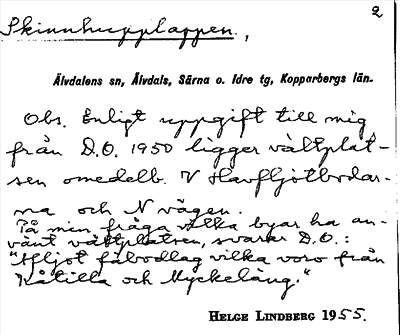 2
Skinnhupploppen.,
Älvdalens sn, Älvdals, Särna o. Idre tg, Kopparbergs län.
Obs. Enligt uppgift till mig
från D.O. 1950 ligger våltplat-
sen omedelb. V Havfljotbodar-
na och N vägen.
På min fråga vilka byar ha an-
vänt våltplatsen, svarar D.O.:
fäbodlag vilka voro från
och Myckeläng."
HELGE LINDBERG 1955.